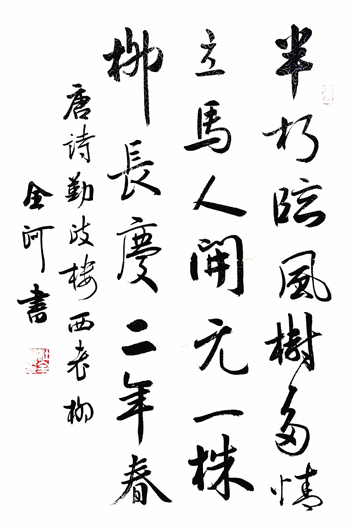 半朽臨風樹多情
立馬人開元一株
柳長慶二年春
唐詩勤政樓西老柳
全河書